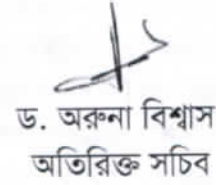 ড. অরুনা বিশ্বাস
অতিরিক্ত সচিব